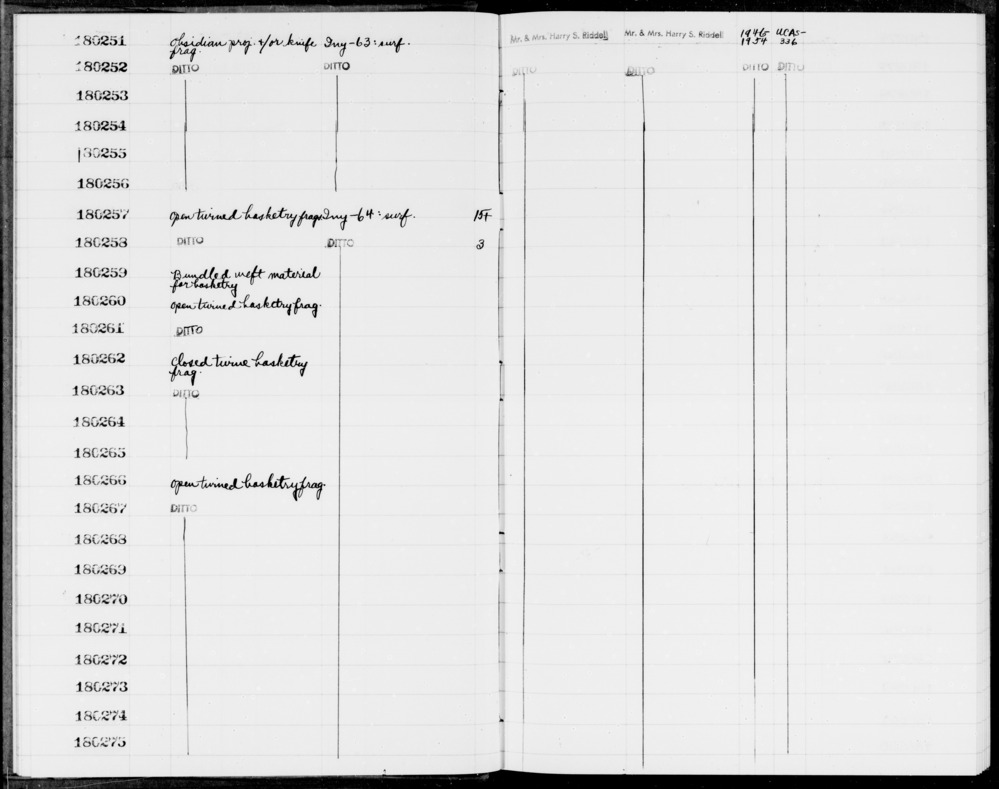 180251 Obsidian proj. &/or knife Iny-63: surf. Mr. & Mrs. Harry S. Riddell Mr. & Mrs. Harry S. Riddell 1946- UCAS-
frag. 1954 336
180252 DITTO DITTO DITTO DITTO DITTO DITTO
180253
180254
180255
180256
180257 open twined basketry frags Iny-64: surf. 15+
180258 DITTO DITTO 3
180259 Bundled weft material
for basketry
180260 open twined basketry frag.
180261 DITTO
180262 Closed twine basketry
frag.
180263 DITTO
180264
180265
180266 open twined basketry frag.
180267 DITTO
180268
180269
180270
180271
180272
180273
180274
180275